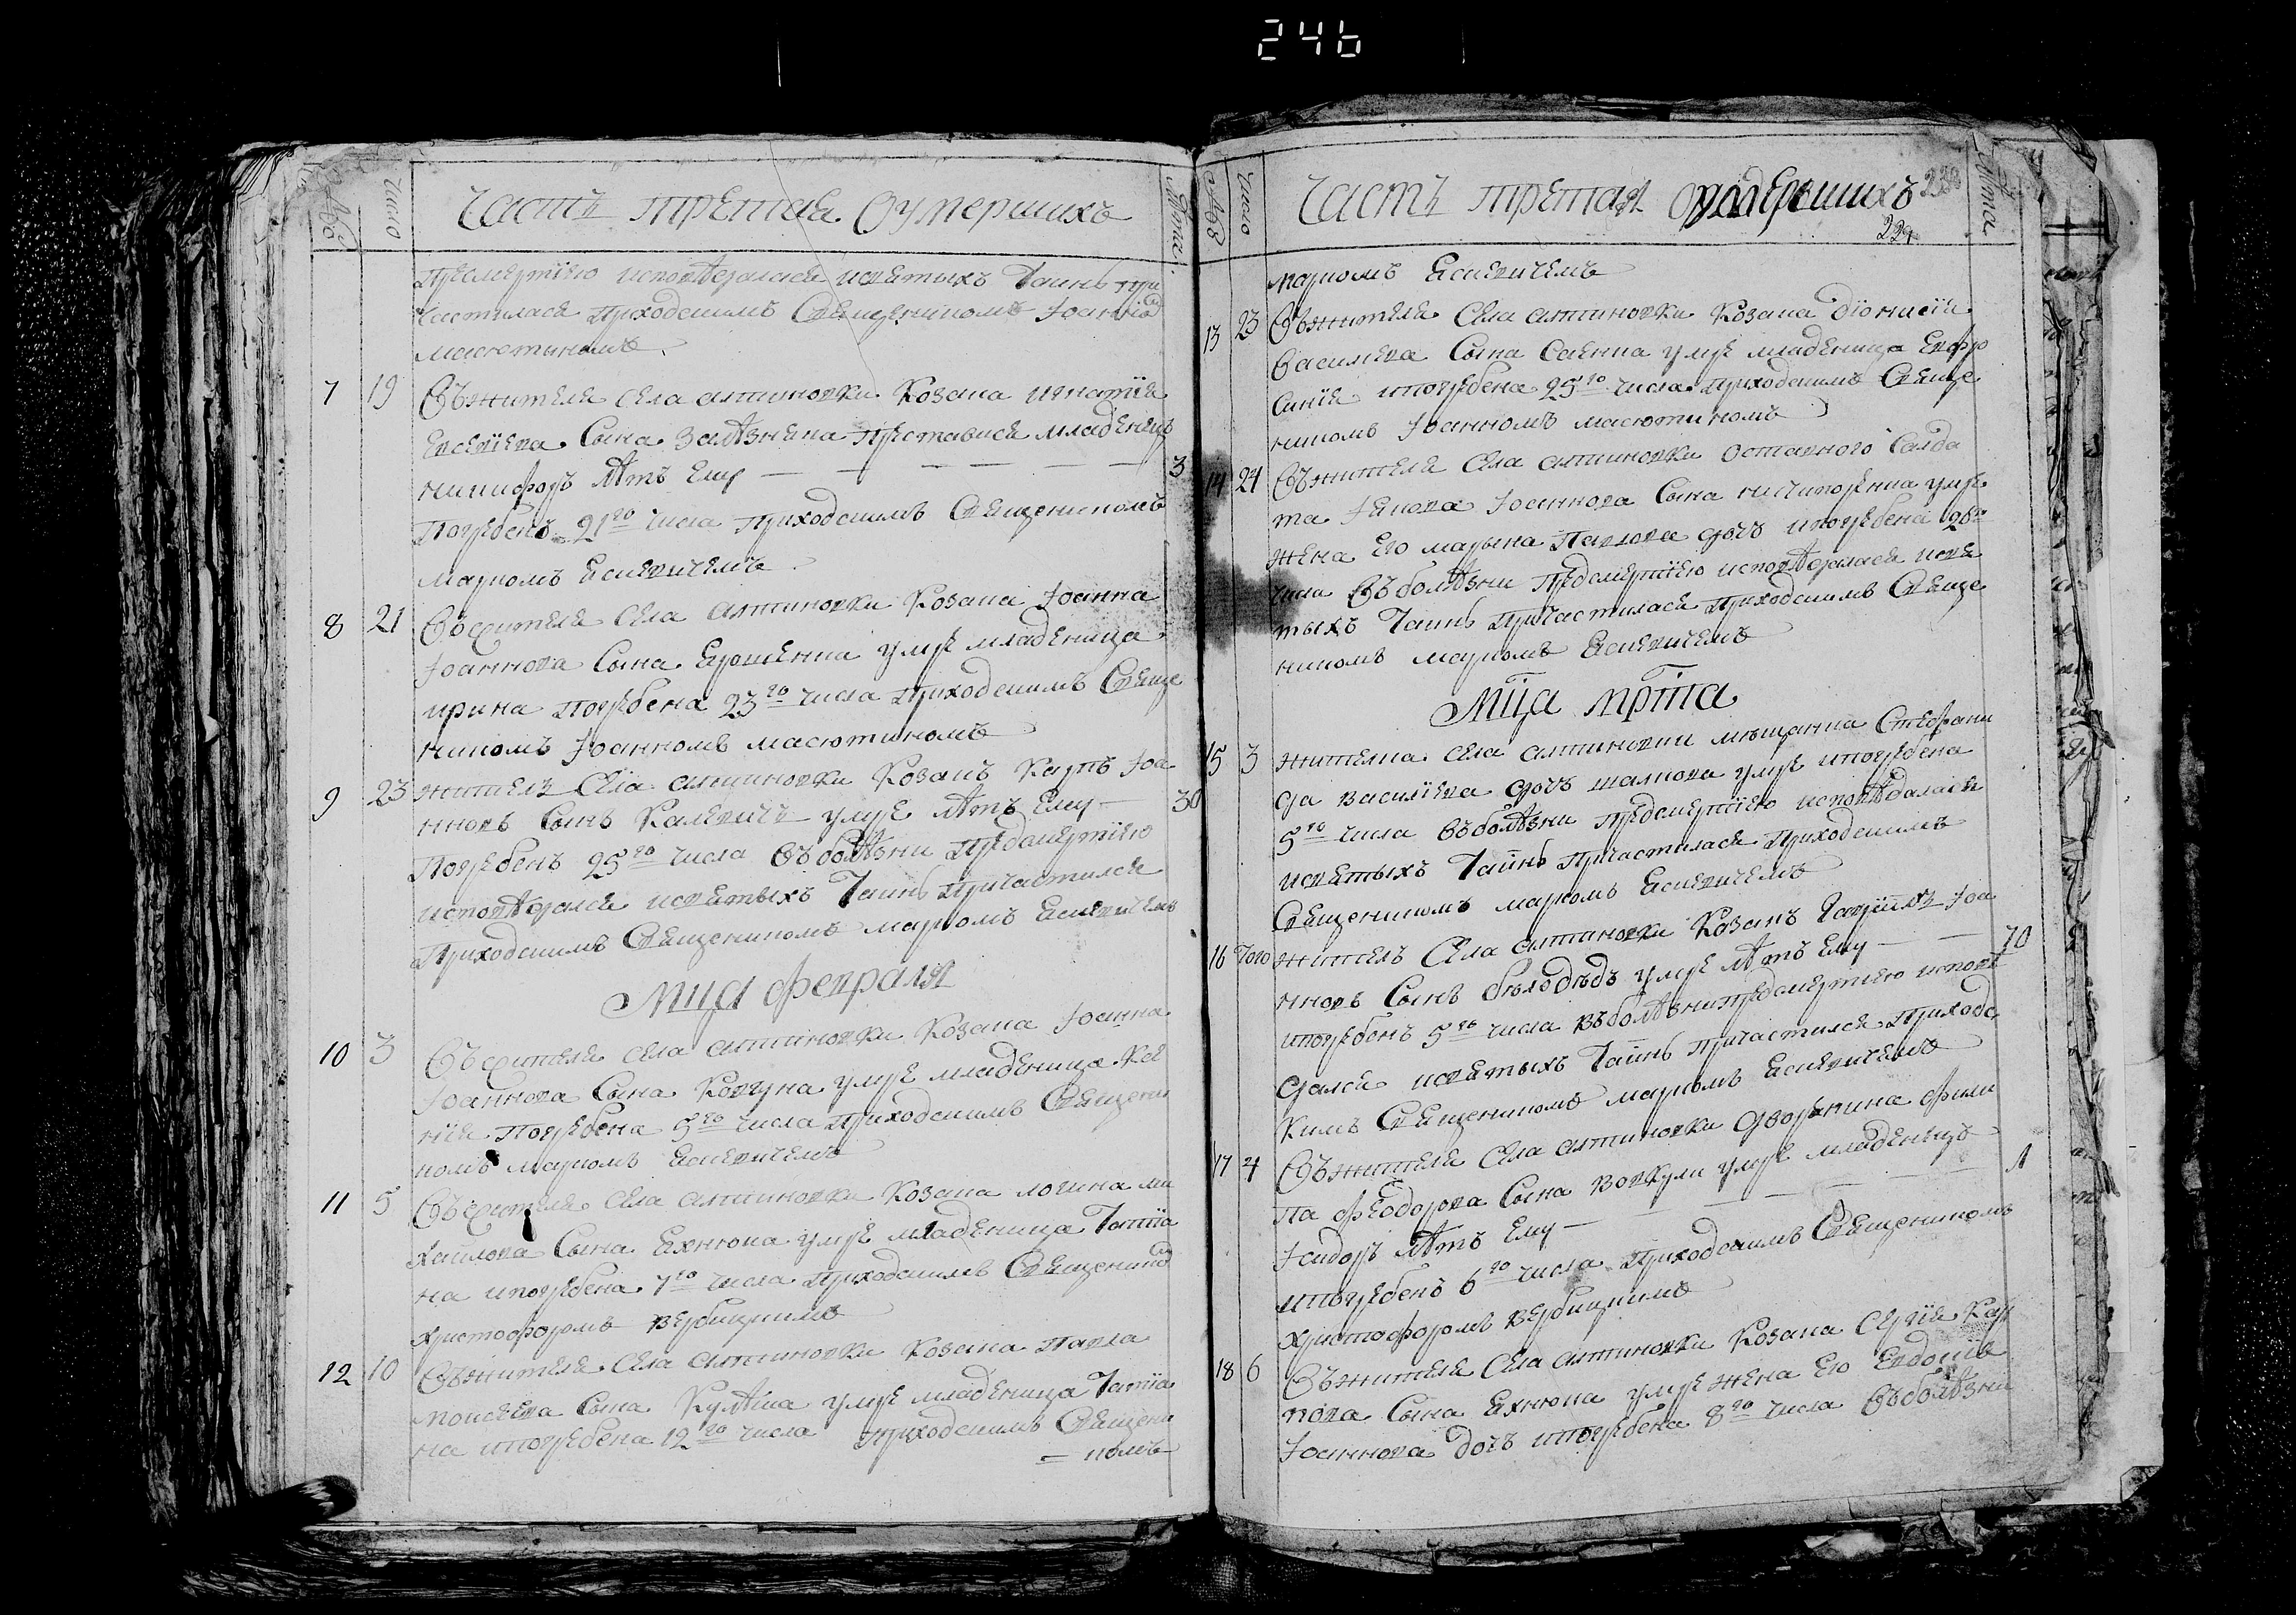 246
№ Число Часть третая Оумершихъ Лѣта
Предсмертїю исповѣдалася исвятыхъ Таинъ при
частилася приходскимъ Священикомъ Іоанномъ
масютинomъ
7 19 Въжителя Села алтиновки Козака игнатїя
Евсевїева Сына Залѣзняка Преставися младенецъ
никифоръ лѣтъ Ему — — — — — — — 3
Погребенъ 21го числа Приходскимъ Священикомъ
маркомъ Есиевичемъ
8 21 Въжителя Села алтиновки Козака Іоанна
Іоаннова Сына Ерошенка умре младеница
ирина погребена 23го числа приходскимъ Свяще
никомъ Іоанномъ масютинomъ
9 23 жителъ Села алтиновки Козакъ Карпъ Іоа
нновъ Сынъ Калевичъ умре лѣтъ Ему — 30
Погребенъ 25го числа Въболѣзни Предсмертїю
исповѣдался исвятыхъ Таинъ Причастился
Приходскимъ Священикомъ маркомъ Есиевичемъ
Мца февраля
10 3 Въжителя Села алтиновки Козака Іоанна
Іоаннова Сына Ковуна умре младеница Ксе
нїя Погребена 5го числа Приходскимъ Священи
комъ маркомъ Есиевичемъ
11 5 Въжителя Села алтиновки Козака логина ми
хаилова Сына Ехнюка умре младеница Татїа
на ипогребена 7го числа приходскимъ Священикомъ
христофоромъ вербицкимъ
12 10 Въжителя Села алтиновки Козака павла
моисеева Сына Кулѣша умре младеница Татїа
на ипогребена 12го числа приходскимъ Священи
= комъ
№ Число Часть третая Оумершихъ Лѣта
229
маркомъ Есиевичемъ
13 23 Въжителя Села алтиновки Козака дїонисїя
Василиева Сына Саенка умре младеница Евфро
синїя ипогребена 25го числа приходскимъ Свяще
никомъ Іоанномъ масютинomъ
14 24 Въжителя Села алтиновки оставного Салда
та Іякова Іоаннова Сына ничипоренка умре
жена Его марына Павлова дочъ ипогребена 26го
числа Въболѣзни Предсмертїю исповѣдалася исвя
тыхъ Таинъ Причастилася приходскимъ Свяще
никомъ маркомъ Есиевичемъ
Мца мрта
15 3 жителка Села алтиновки мещанка Стефани
да василїева дочъ шалпова умре ипогребена
5го числа Въболѣзни Предсмертїю исповѣдалася
исвятыхъ Таинъ Причастилася Приходскимъ
Священикомъ маркомъ Есиевичемъ
16 Того жителъ Села алтиновки Козакъ Гаврїилъ Іоа
нновъ Сынъ бѣлодѣдъ умре лѣтъ Ему — — 70
ипогребенъ 5го числа Въболѣзни Предсмертїю исповѣ
дался исвятыхъ Таинъ Причастился Приходс
кимъ Священикомъ маркомъ Есиевичемъ
17 4 Въжителя Села алтиновки дворянина фили
па феодорова Сына вовкули умре младенецъ
Ісидоръ лѣтъ Ему — — — — — 1
ипогребенъ 6го числа Приходскимъ Священикомъ
христофоромъ вербицкимъ
18 6 Въжителя Села алтиновки Козака Сергїя Кар
пова Сына Ехнюка умре жена Его Евдокїя
Іоаннова дочъ ипогребена 8го числа Въболѣзни